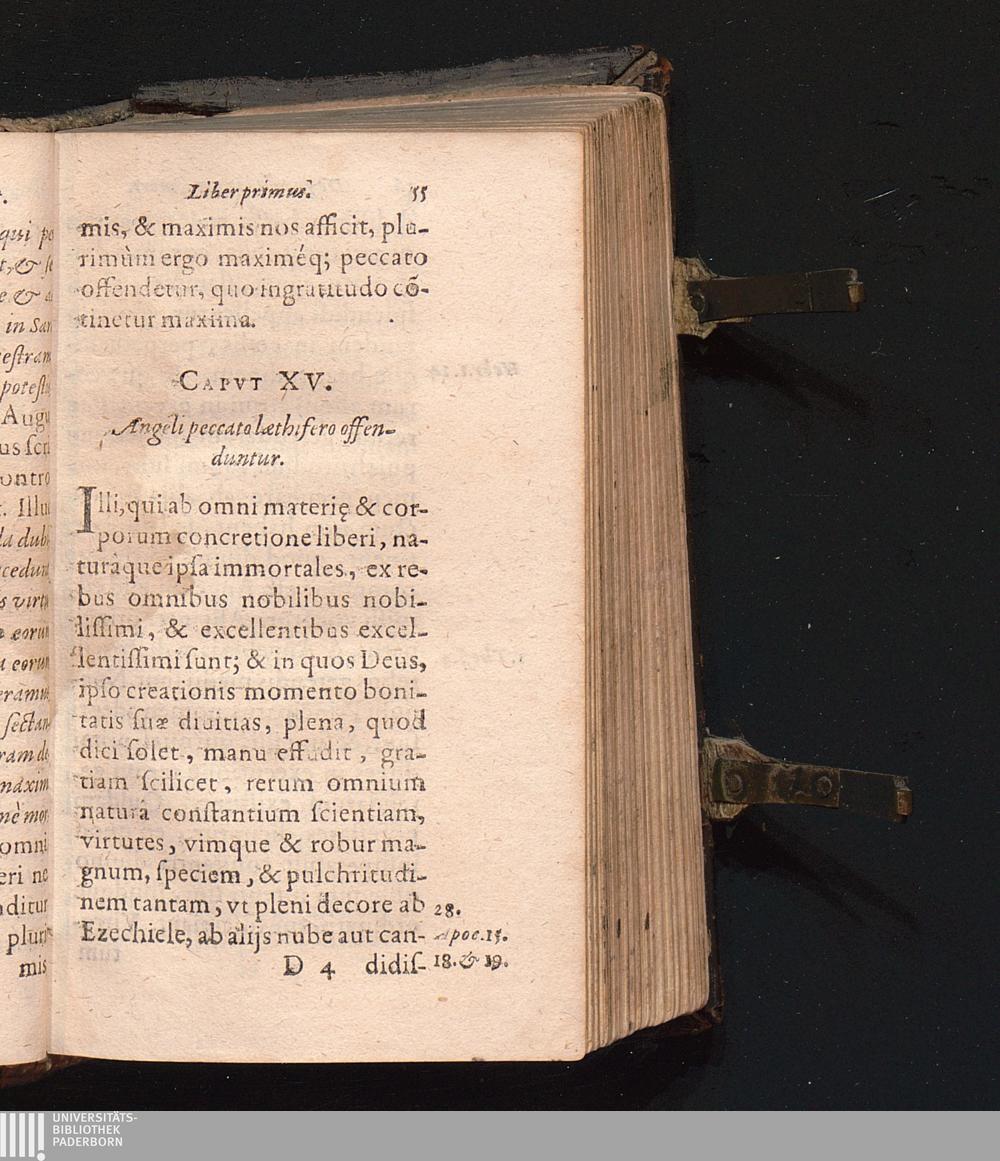 Liber primus. 55
mis, & maximis nos afficit, plu-
rimùm ergo maximéq; peccato
offendetur, quo ingratitudo cõ-
tinetur maxima.
CAPVT XV.
Angeli peccato læthifero offen-
duntur.
Illi, qui ab omni materię & cor-
porum concretione liberi, na-
turáque ipsa immortales, ex re-
bus omnibus nobilibus nobi-
lissimi, & excellentibus excel-
lentissimi sunt; & in quos Deus,
ipso creationis momento boni-
tatis suæ diuitias, plena, quod
dici solet, manu effudit, gra-
tiam scilicet, rerum omnium
naturá constantium scientiam,
virtutes, vimque & robur ma-
gnum, speciem, & pulchritudi-
nem tantam, vt pleni decore ab
Ezechiele, ab alijs nube aut can-
D 4 didis-
28.
Apoc. 15.
18. & 19.
qui
in San
August
omni
pluri-
mis
UNIVERSITÄTS-
BIBLIOTHEK
PADERBORN